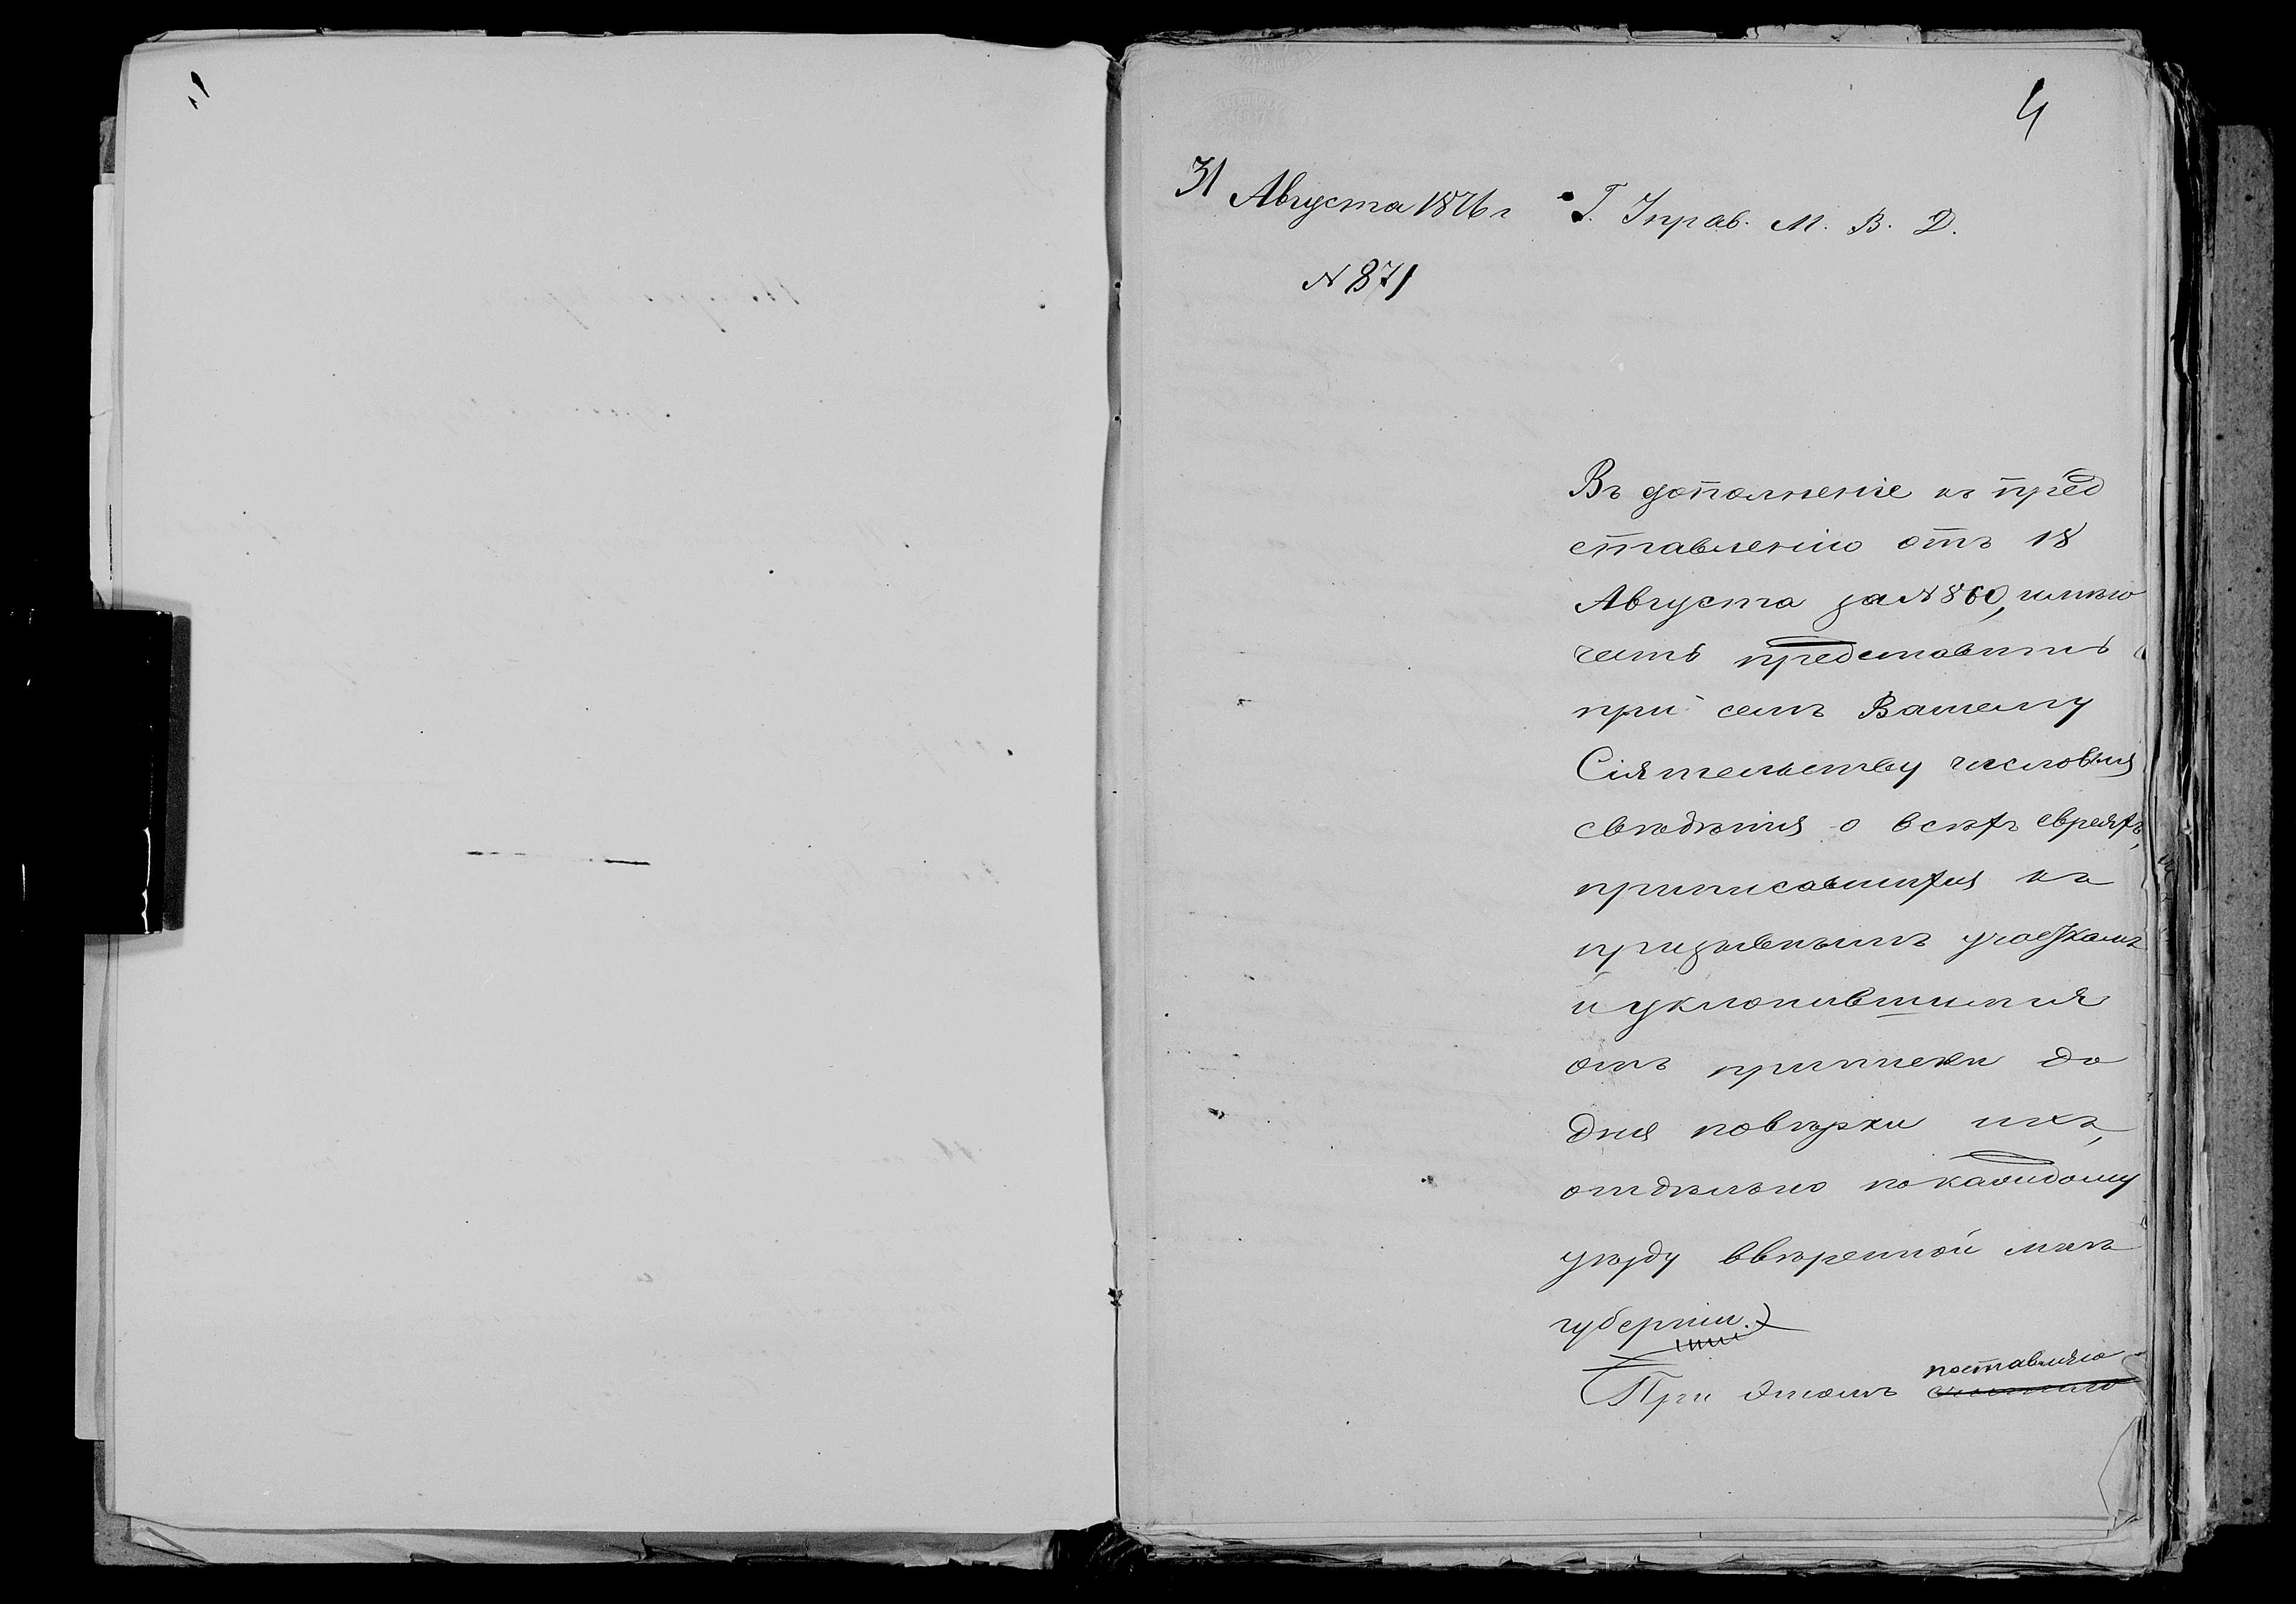 4
31 Августа 1876 г
Г. Управ. М. В. Д.
№ 871
Въ дополненіе къ пред
ставленію отъ 18
Августа за № 860, имѣю
честь представить
при семъ Вашему
Сіятельству числовыя
свѣдѣнія о всѣхъ евреяхъ,
приписавшихся къ
призывнымъ участкамъ
и уклонившихся
отъ приписки до
дня повѣрки ихъ,
отдѣльно по каждому
уѣзду ввѣренной мнѣ
губерніи.
поставляю
При этомъ